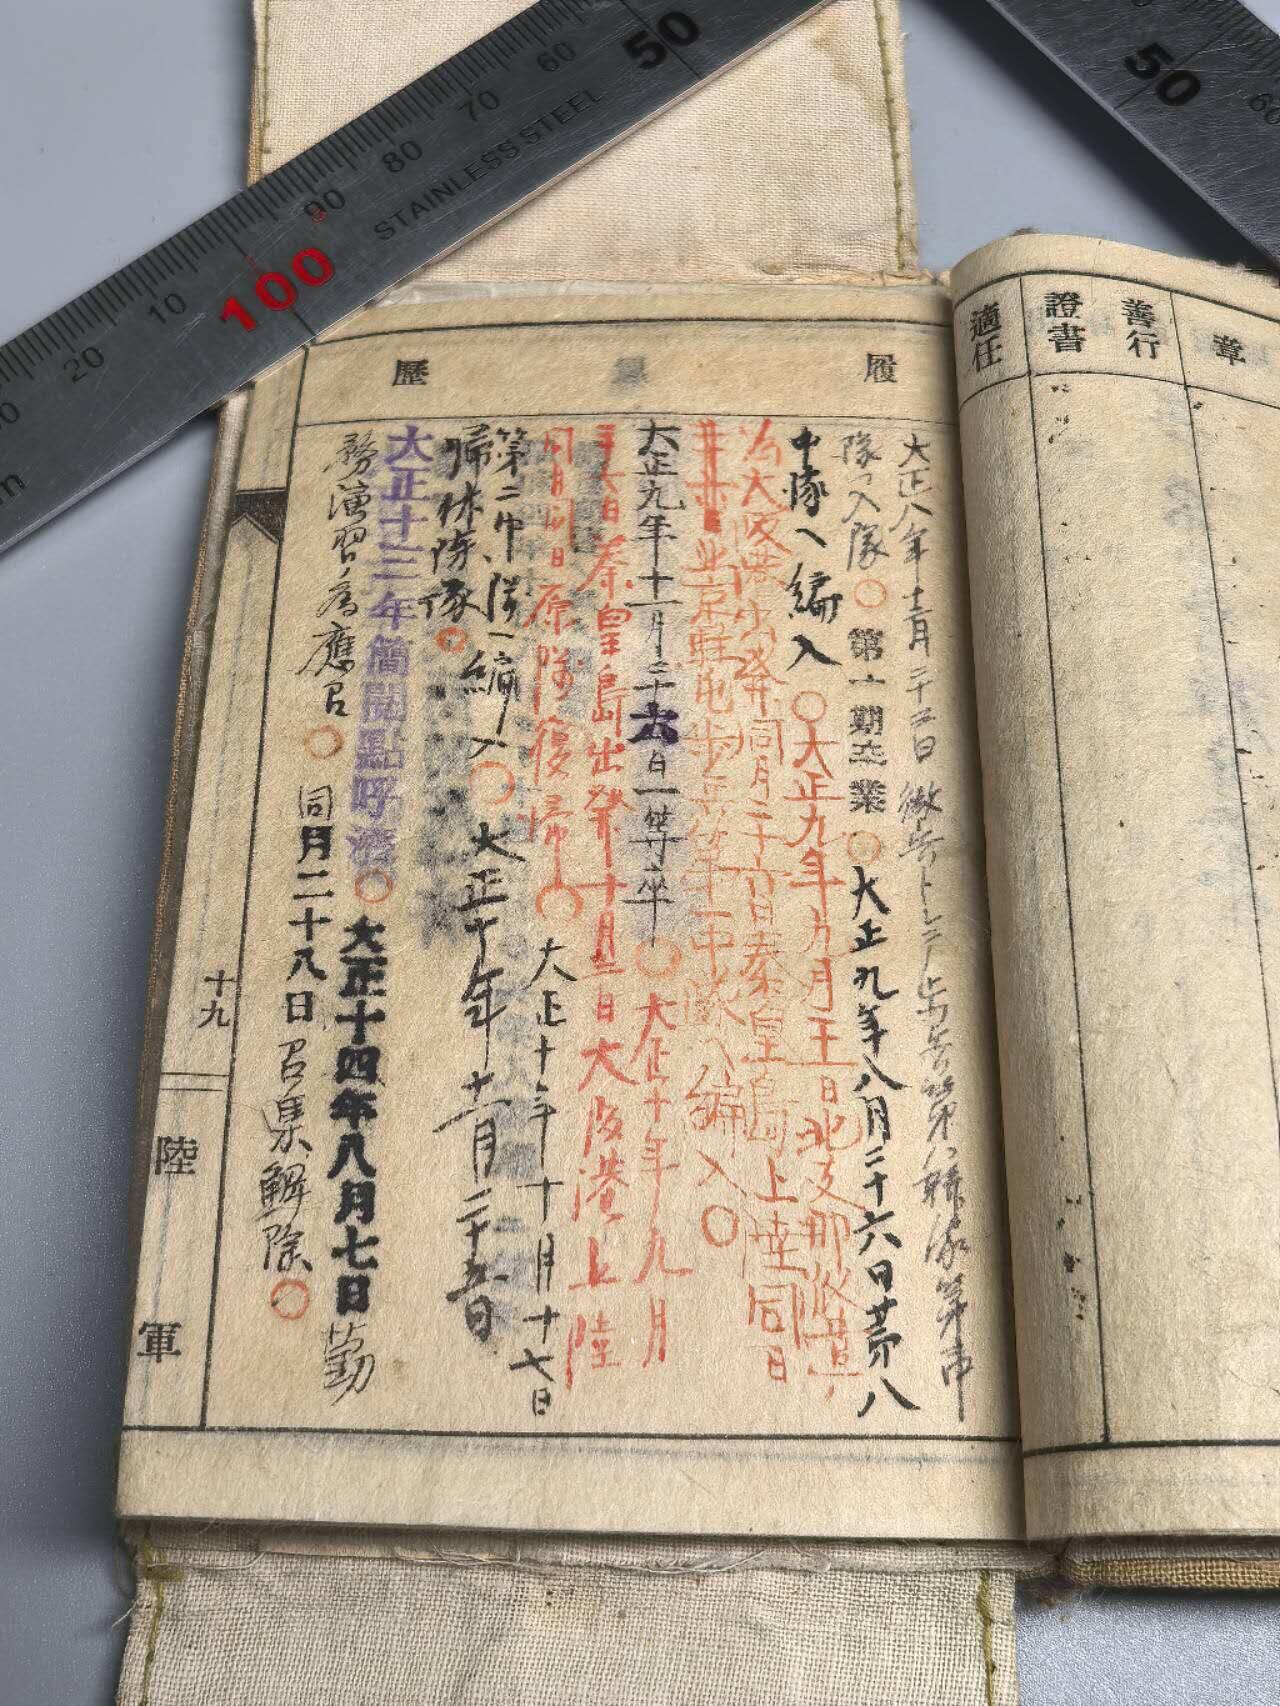 50
60
70
80
90
100
10
20
STAINLESS STEEL
50
60
章
善行
證書
適任
履
歴
大正八年十二月二十日徴兵トシテ歩兵第八聯隊第
隊へ入隊○第一期卒業○大正九年八月二十六日第八
中隊へ編入○大正九年九月日北支那派遣
為大阪港出発同月二十六日秦皇島上陸同日
北京駐屯歩兵第一中隊へ編入○
大正九年十一月三十六日一等卒○大正十年九月
日秦皇島出発十月二日大阪港上陸
同月同日原隊復帰○大正十年十月十七日
第二中隊へ編入○大正十年十一月二十五日
帰休除隊○
大正十三年簡閲點呼濟○大正十四年八月七日勤
務演習ノ為應召○同月二十八日召集解除○
十九
陸
軍